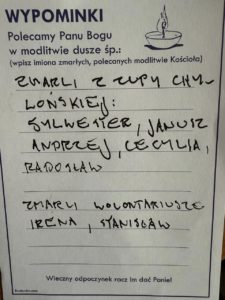 WYPOMINKI
Polecamy Panu Bogu
w modlitwie dusze śp.:
(wpisz imiona zmarłych, polecanych modlitwie Kościoła)
ZMARLI Z ZUPY CHY-
LOŃSKIEJ:
SYLWESTER, JANUSZ
ANDRZEJ, CECYLIA,
RADOSŁAW
ZMARLI WOLONTARIUSZE
IRENA, STANISŁAW
Wieczny odpoczynek racz im dać Panie!